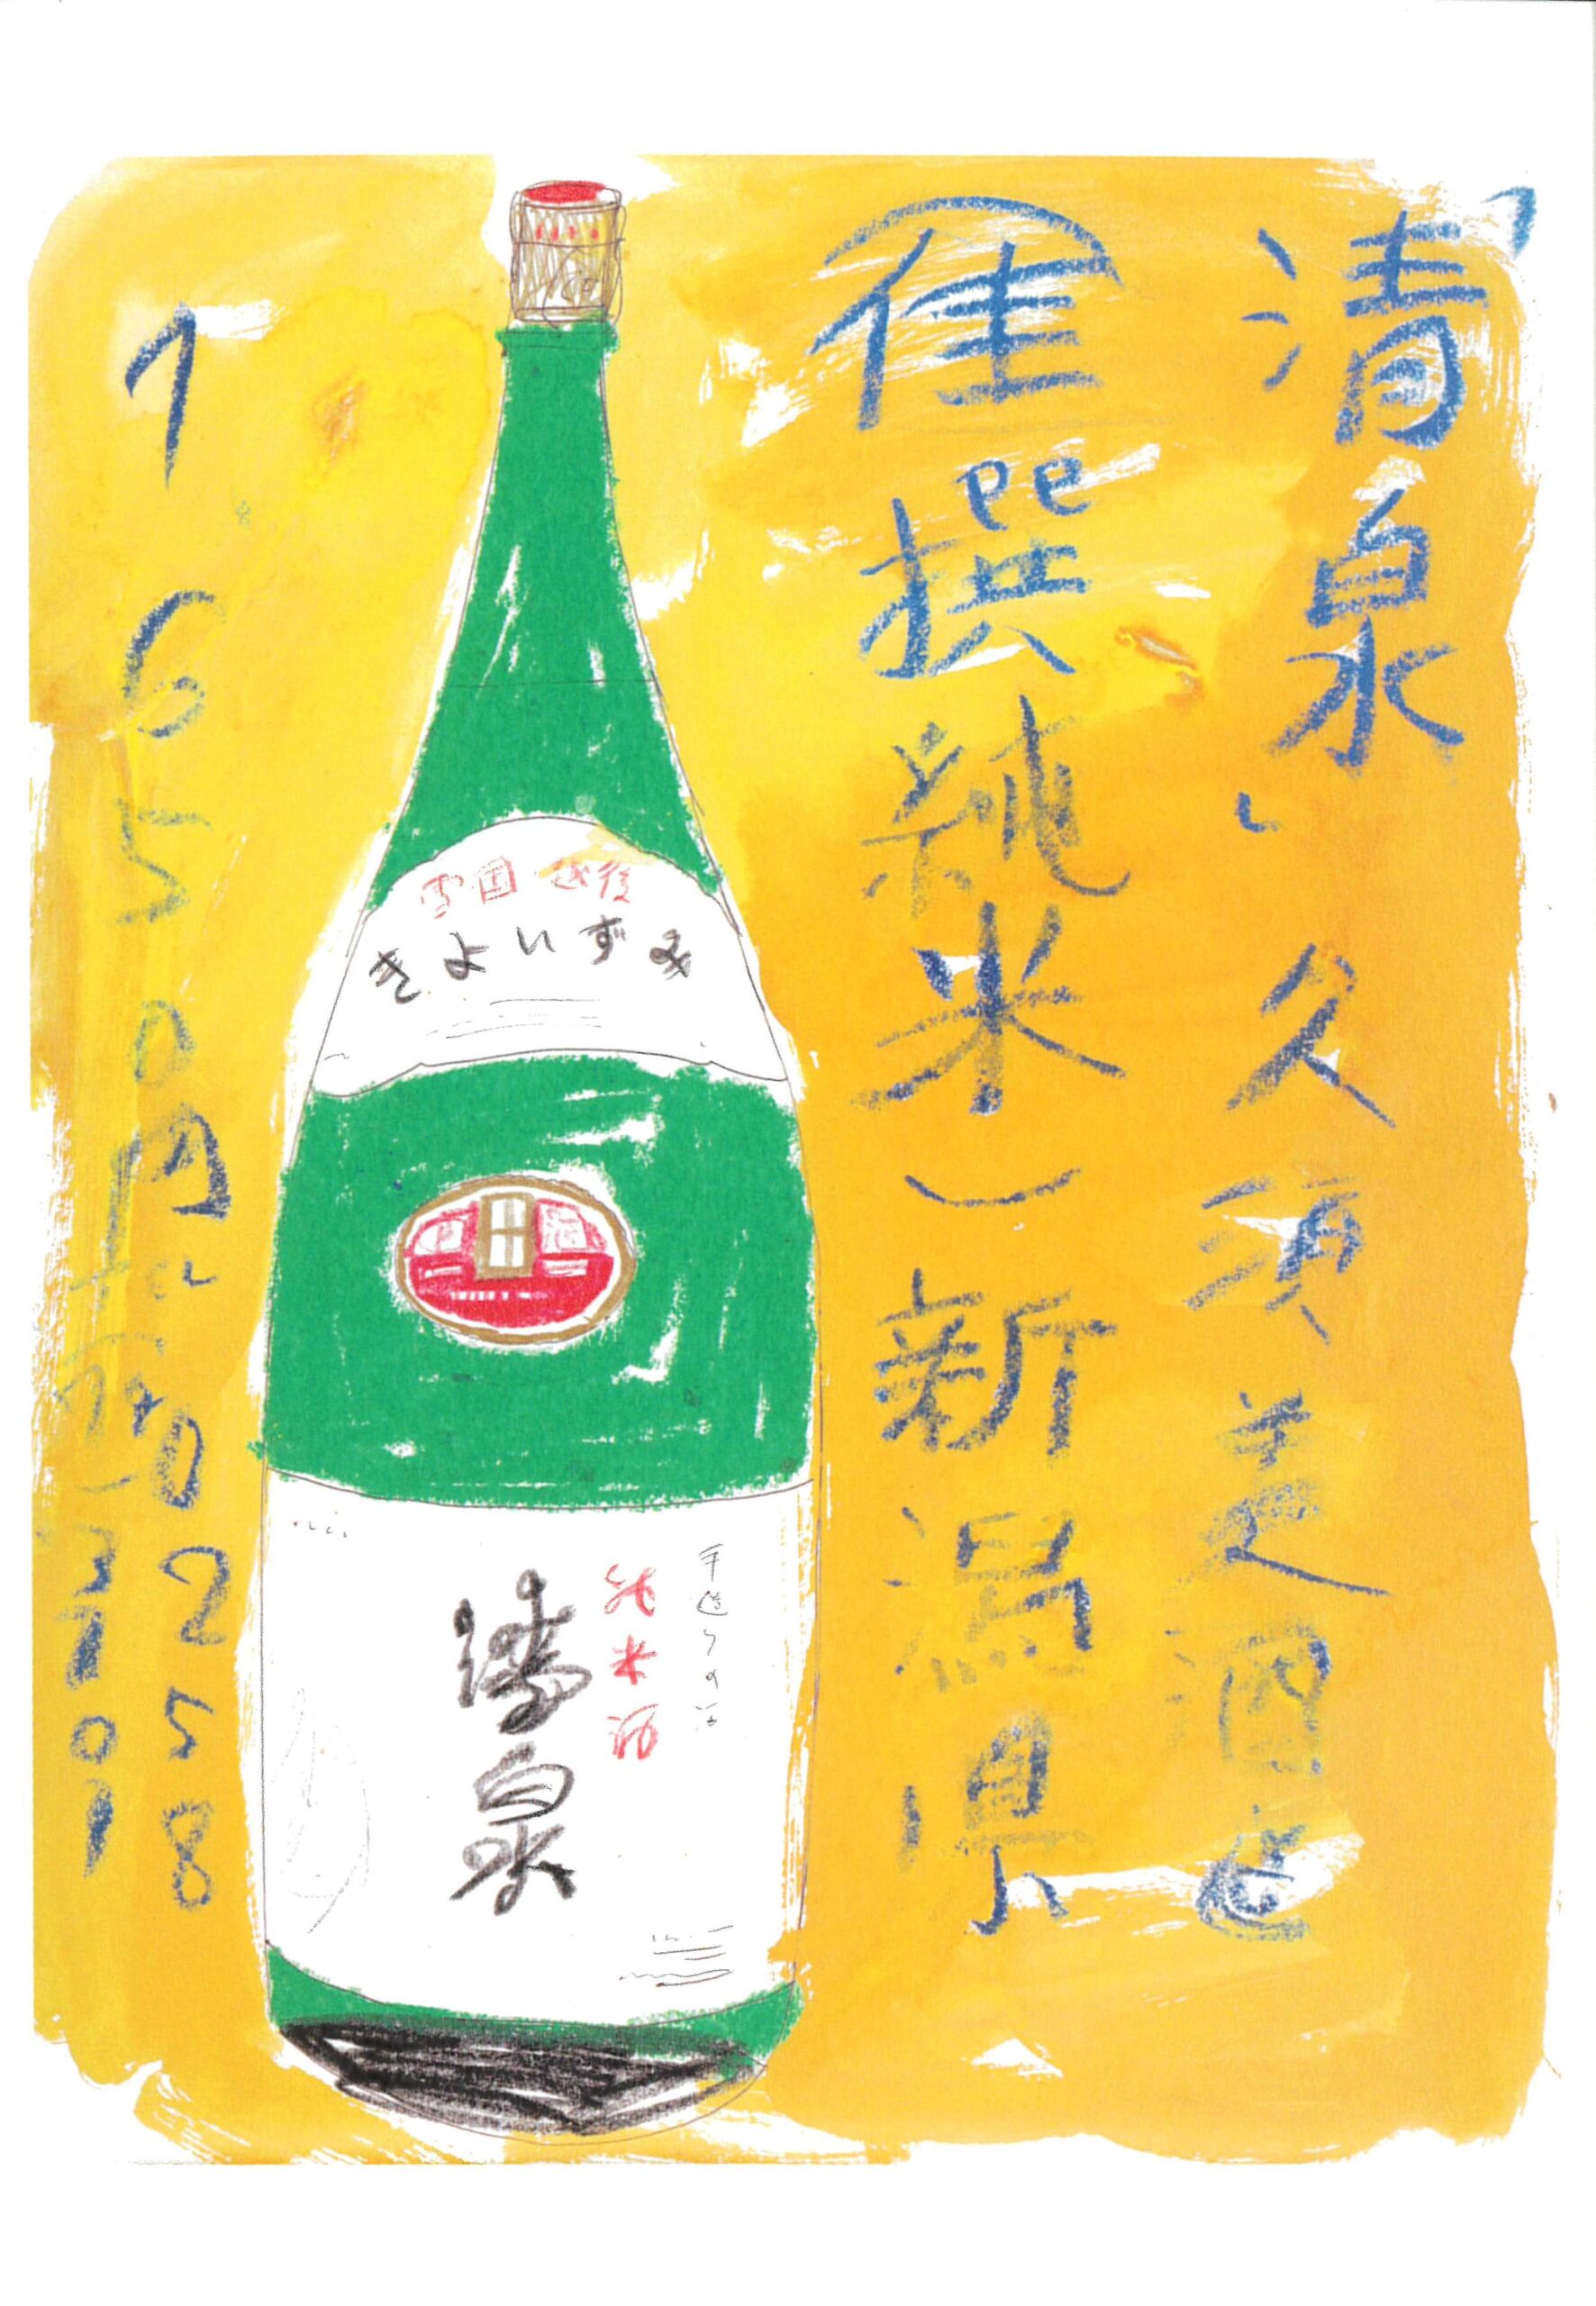 清泉、久須美酒造
(佳撰純米)新潟県
雪国 越後
きよいずみ
手造りの酒
純米酒
清泉
1650円